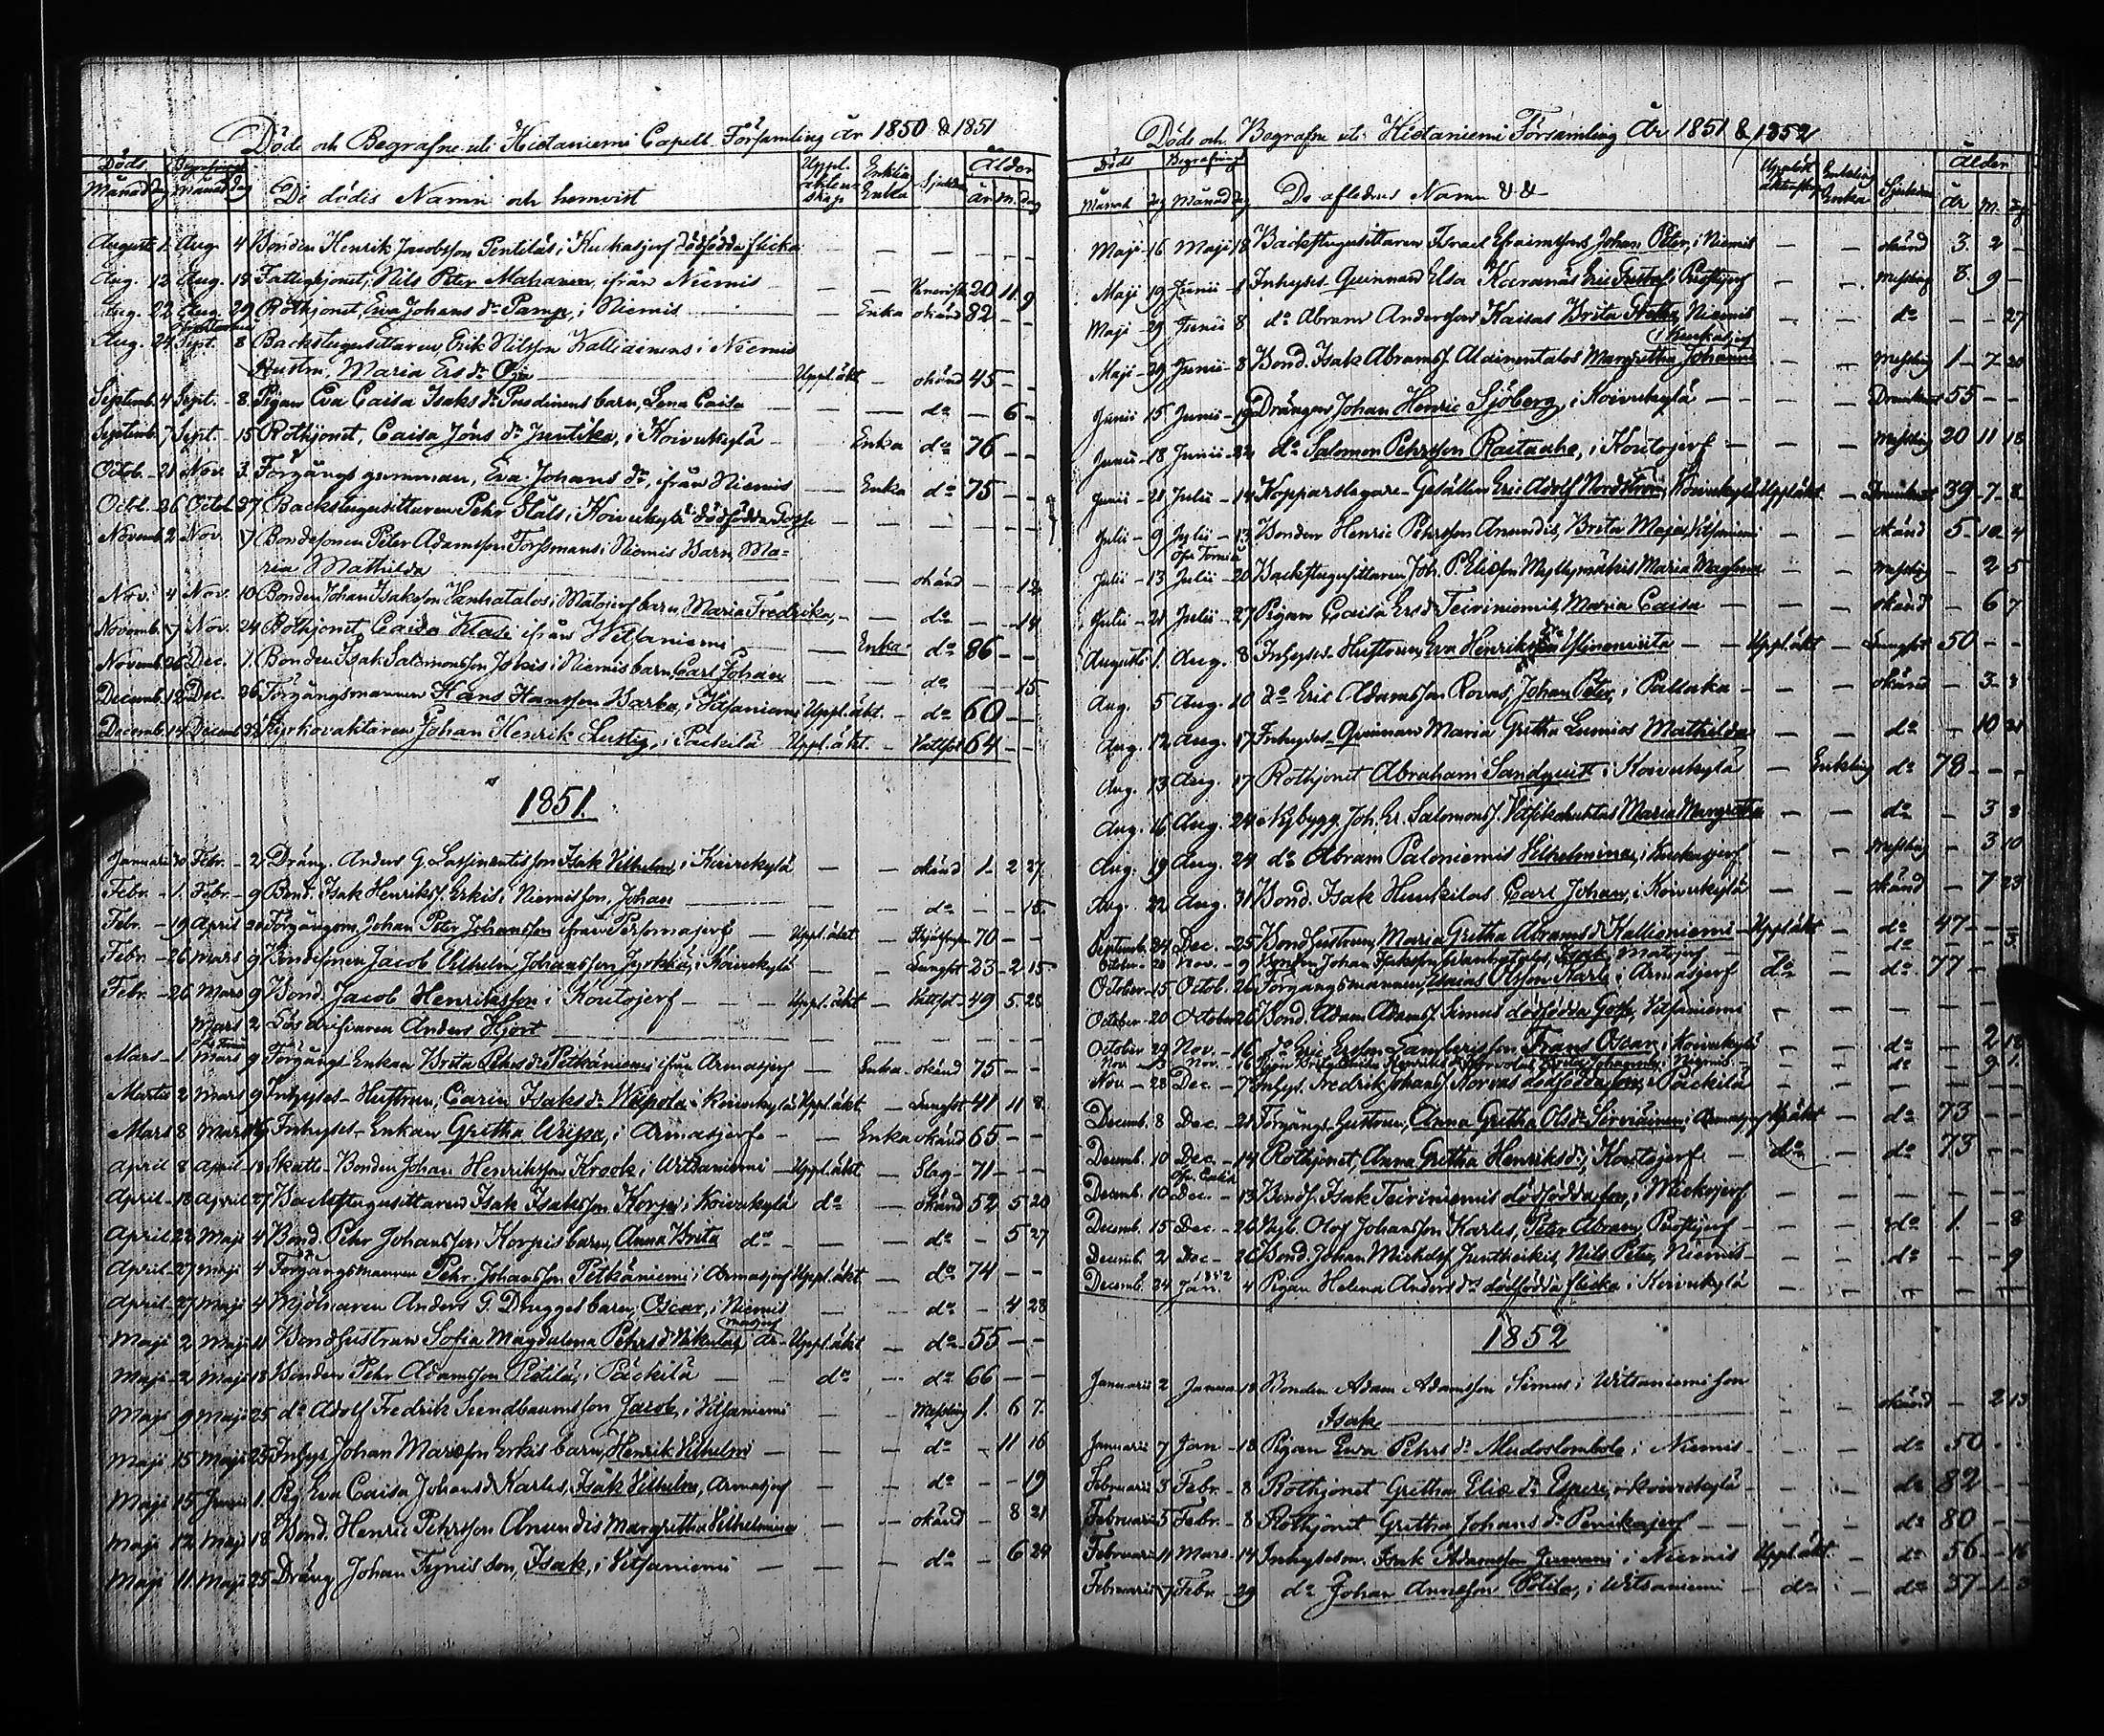 Döde och Begrafne uti Hietaniemi Capell Församling år 1850 & 1851
Döds Begrafnings Uppl. äktenskap Enkling Enka Sjukdom Ålder
Månad dag Månad dag De dödes Namn och hemvist år m. dag
Augusti 1. Aug. 4 Bonden Henrik Jacobsson Pentiläs i Kuckasjerf dödfödda flicka — — — — — —
Aug. 12 Aug. 18 Fattighjonet, Nils Peter ifrån Niemis — — 20 11 9
Aug. 22 Aug. 29 Rothjonet, Eva Johans dr Pamp, i Niemis — Enka okänd 82 — —
Aug. 24 Sept. 8 Backstugusittaren Erik Nilsson Kalliainens i Niemis
Hustru, Maria Ers dr Oja Uppl. äkt — okänd 45 — —
Septemb. 4 Sept. 8 Pigan Eva Caisa Isaks dr barn, Lena Caisa — — do — 6 —
Septemb. 7 Sept. 15 Rothjonet, Caisa Jöns dr i Koivukylä — Enka do 76 — —
Octob. 21 Nov. 3. Förgångs gumman, Eva Johans dr, ifrån Niemis — Enka do 75 — —
Octb. 26 Octob. 27 Backstugusittaren Pehr Ståls i Koivukylä dödfödda Gosse — — — — — —
Novemb. 2 Nov. Bondesonen Peter Adamsson Forssmans i Niemis Barn, Ma=
ria Mathilda — — okänd — — 12
Nov. 4 Nov. 10 Bonden Johan Isaksson Vanhatalos i Matojerf barn Maria Fredrika, — — do — — 14
Novemb. 17 Nov. 24 Rothjonet Caisa Klasi ifrån Vitsaniemi — Enka do 86 — —
Novemb. 26 Dec. 1. Bonden Isak Salomonsson i Niemis barn Carl Johan — — do — — 15
Decemb. 12 Dec. 26 Förgångsmannen Hans Hansson Barka, i Vitsaniemi Uppl. äkt. — do 60 —
Decemb. 14 Decemb. Kyrkovaktaren Johan Henrik Lustig, i Päckilä Uppl. äkt. — Vattsot 64 — —
1851.
Januarii Febr. 2 Dräng. Anders G. son Isak Vilhelm, i Koivukylä — — okänd 1 2 27
Febr. 1. Febr. 9 Bond. Isak Henrikss. Erkis i Niemis son, Johan — — do — — 15
Febr. 19 April 20 Förgångsm. Johan Peter Johansson ifrån Persomajerf — Uppl. äkt — 70 — —
Febr. 26 Mars 9 Bondesonen Jacob Vilhelm Johansson i Koivukylä — — Lungsot 23 2 15
Febr. 26 Mars 9 Bond. Jacob Henriksson i Koutojerf — Uppl. äkt — Vattsot 49 5 28
Mars 2 Lösdrifvaren Anders Hjort — — — — — —
Mars 1. Mars 9 Förgångs Enkan Brita Pehrs dr Pelkäniemi ifrån Armasjerf — Enka okänd 75 — —
Martii 2 Mars 9 Inhyses Hustrun, Carin Isaks dr i Koivukylä Uppl. äkt — Lungsot 41 11 8
Mars 8 Mars Inhyses Enkan Gretha i Armasjerf — Enka okänd 65 — —
April 8 April 13 Skatte Bonden Johan Henriksson Krook i Witsaniemi Uppl. äkt — Slag 71 — —
April 18 April 27 Backstugusittaren Isak Isaksson Korpi i Koivukylä do — okänd 52 5 20
April 23 Maji 4 Bond. Pehr Johansson Korpis barn, Anna Brita do — — do — 5 27
April 27 Maji 4 Förgångsmannen Pehr Johansson Pelkäniemi i Armasjerf Uppl. äkt — do 74 — —
April 27 Maji 4 Mjölnaren Anders G. Drugges barn, Oscar, i Niemis — — do — 4 28
Maji 2 Maji 11 Bondhustrun Sofia Magdalena Pehrs dr Uppl. äkt — do 55 — —
Maji 2 Maji 18 Bonden Pehr Adamsson i Päckilä — do — do 66 — —
Maji 9 Maji 25 do Adolf Fredrik son Jacob, i Vitsaniemi — — Messling 1. 6 7.
Maji 15 Maji 25 Inhys. Johan Marieson Erkis barn, Henrik Vilhelm — — do — 11 16
Maji 15 Junii 1. Pig. Eva Caisa Johans dr Karles, Isak Vilhelm, Armasjerf — — do — — 19
Maji 12 Maji 18 Bond. Henric Pehrsson Anundis Margretha Vilhelmina — — okänd — 8 21
Maji 11. Maji 25 Dräng Johan son, Isak, i Vitsaniemi — — do — 6 24
Döde och Begrafne uti Hietaniemi Församling År 1851 & 1852
Döds Begrafnings Upplöst äktenskap Enkling Enka Sjukdom Ålder
Månad dag Månad dag De aflednes Namn && År M. dag
Maji 16 Maji 18 Backstugusittaren Israel Efraimssons Johan Peter, i Niemis — — okänd 3 2 —
Maji 19 Junii 1 Inhyses Quinnan Elsa — — Messling 8. 9 —
Maji 29 Junii 8 do Abram Anderssons Kaisas Brita Gretha Niemis — — do — — 27
i Kuckasjerf
Maji 29 Junii 8 Bond. Isak Abramss. Alainentalos Margretha Johanna — — Messling 1 7 20
Junii 15 Junii 19 Drängen Johan Henric Sjöberg, i Koivukylä — — Drunknat 55 — —
Junii 18 Junii 22 do Salomon Pehrsson i Koutojerf — — Messling 20 11 18
Junii 21 Julii 14 Kopparslagare-Gesällen Eric Adolf Nordström, Koivukylä Uppl. äkt. — Drunknat 39 7 8
Julii 9 Julii 13 Bonden Henric Pehrsson Anundis, Brita Maja, Vitsaniemi — — okänd 5 10 4
Öfver Torneå
Julii 13 Julii 20 Backstugusittaren Joh. P. Eliæson Myllymäkis Maria Maglena — — Messling — 2 5
Julii 21 Julii 27 Pigan Caisa Ersd. Teiriniemis, Maria Caisa — — okänd — 6 7
Augusti 1. Aug. 8 Inhyses Hustrun, Eva Henriks dr — Uppl. äkt — Lungsot 50 — —
Aug. 5 Aug. 10 do Eric Adamsson Rovas, Johan Peter, i Pallaka — — okänd — 3
Aug. 12 Aug. 17 Inhyses Quinnan Maria Gretha Lumios Mathilda — — do — 10 21
Aug. 13 Aug. 17 Rothjonet Abraham Sandquist i Koivukylä — Enkling do 78 — —
Aug. 16 Aug. 24 Nybygg. Joh. Er. Salomonss. Maria Margretha — — do — 3 8
Aug. 19 Aug. 24 do Abram Paloniemis Vilhelmina, i Kuckasjerf — — Messling — 3 10
Aug. 22 Aug. 31 Bond. Isak Carl Johan, i Koivukylä — — okänd — 7 23
Septemb. 24 Dec. 25 Bondhustrun Maria Gretha Abrams dr Kallioniemi Uppl. äkt — do 47 — —
October 20 Nov. 9 Bonden Johan Isaksson Vanhatalos, Isak, Matojerf — — do — — 3
October 15 Octob. 26 Förgångsmannen, Esaias Olsson Karli i Armasjerf do — do 77 —
October 20 October 26 Bond. Adam Adamss. Simus dödfödda Gosse, Vitsaniemi — — — — — —
October 29 Nov. 16 do Eric Ersson son Frans Oscar, i Koivukylä — — do — 2 18
Nov. 3 Nov. 16 Niemis — — do — 9 1.
Nov. 28 Dec. 7 Inhys. Fredrik Johanss. dödfödda son, i Päckilä — — — — — —
Decemb. 8 Dec. 21 Förgångs-Hustrun, Anna Gretha Ols dr i Armasjerf Uppl. äkt — do 73 — —
Decemb. 10 Dec. 14 Rothjonet, Anna Gretha Henriks dr, i Koutojerf — do — do 73 — —
Decemb. 10 Dec. 13 Bonds. Isak Teiriniemis dödfödda son, i Mickojerf — — — — — —
Decemb. 15 Dec. 26 Nyb. Olof Johansson Karles, Peter Abram, — — do 1. — 8
Decemb. 2 Dec. 26 Bond. Johan Nils Peter, Niemis — — do — — 9
Decemb. 24 Jan. 1852 4 Pigan Helena Anders dr dödfödda flicka i Koivukylä — — — — — —
1852
Januarii 2 Janua 18 Bonden Adam Adamsson Simus i Witsaniemi son
Isak — — okänd — 2 13
Januarii 7 Jan 18 Pigan Ewa Pehrs dr i Niemis — — do 50 — —
Februarii 3 Febr. 8 Rothjonet Gretha Eliæ dr i Koivukylä — — do 82 — —
Februarii 5 Febr. 8 Rothjonet Gretha Johans dr Penikajerf — — do 80 — —
Februarii 11 Mars 14 Inhysesm. Isak Adamsson i Niemis Uppl. äkt. — do 56 — 16
Februarii 17 Febr. 29 do Johan Annæson i Witsaniemi — do — do 37 1 3